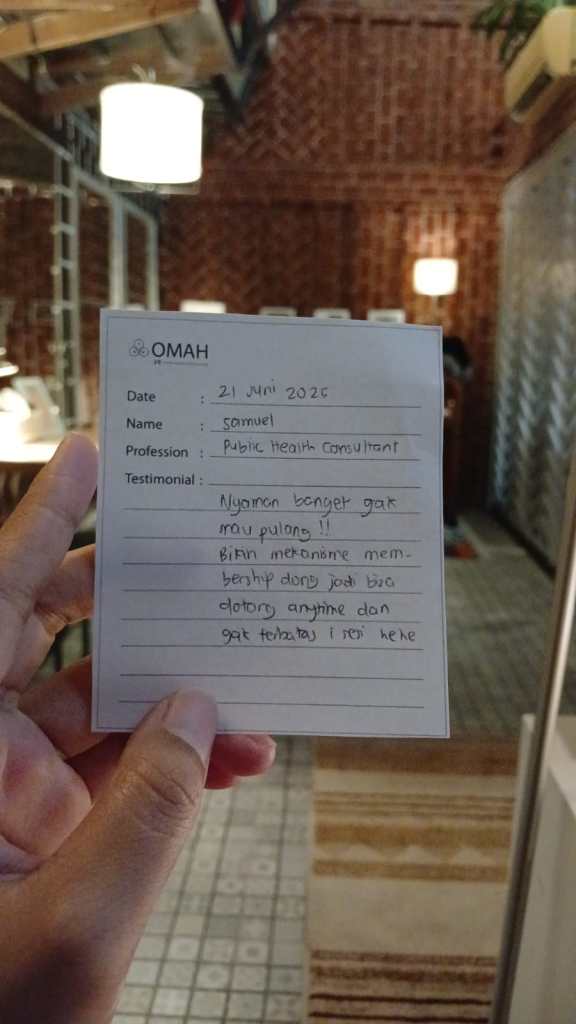 OMAH
Date : 21 Juni 2025
Name : Samuel
Profession : Public Health Consultant
Testimonial :
Nyaman banget gak
mau pulang !!
Bikin mekanisme mem-
bership dong jadi bisa
datang anytime dan
gak terbatas 1 sesi hehe